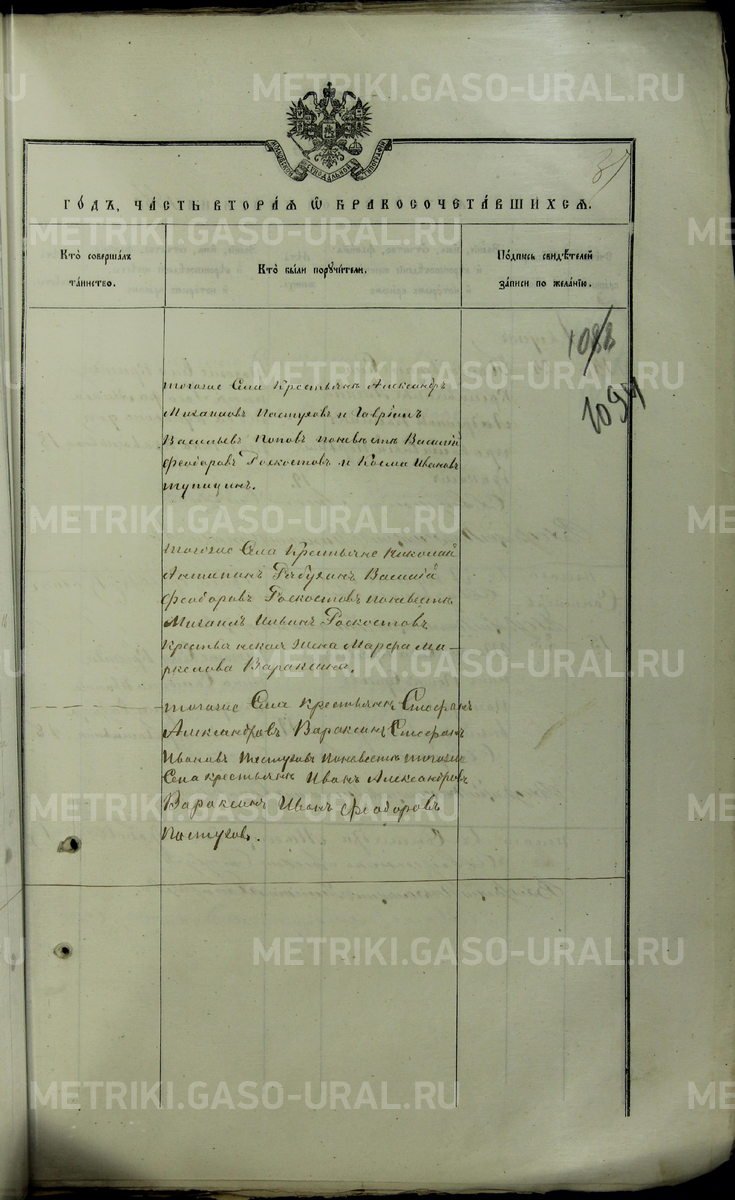 METRIKI.GASO-URAL.RU
31
МОСКОВСКОЙ СѴНОДАЛЬНОЙ ТИПОГРАФІИ
ГО́ДЪ, ЧА́СТЬ ВТОРА́Я Ѡ БРАКОСОЧЕТА́ВШИХСЯ.
Кто̀ соверша́лъ та́инство.
Кто̀ бы́ли поручи́тели.
По́дпись свидѣ́телей за́писи по жела́нію.
1088
1094
тогоже Села Крестьянъ Александръ
Михаиловъ Пастуховъ и Гавріилъ
Васильевъ Поповъ поневѣстѣ Василій
Феодоровъ Роскостовъ и Косма Ивановъ
тупицинъ.
тогоже Села Крестьяне Николай
Антипинъ Рябухинъ Василій
Феодоровъ Роскостовъ поневѣстѣ
Михаилъ Роскостовъ
Крестьянская Жена Марфа Ма-
ркелова Вараксина.
тогоже Села крестьянъ Стефанъ
Александровъ Вараксинъ Стефанъ
Ивановъ Пастуховъ поневѣстѣ тогоже
Села крестьянъ Иванъ Александровъ
Вараксинъ Иванъ Феодоровъ
Пастуховъ.